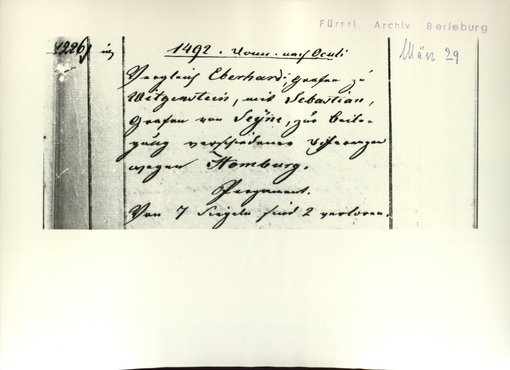 Fürstl. Archiv Berleburg
1226)
1492. Donn. nach Oculi
März 29
Vergleich Eberhard, Grafen zu
Witgenstein, mit Sebastian,
Grafen von Seyne, zur Beile-
gung verschiedener Differenzen
wegen Homburg.
Pergament.
Von 7 Siegeln sind 2 verloren.